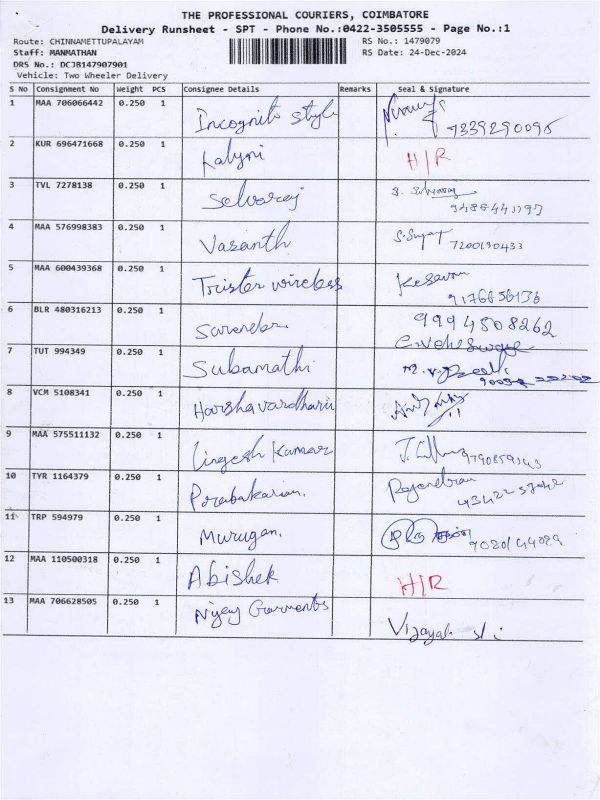 THE PROFESSIONAL COURIERS, COIMBATORE
Delivery Runsheet - SPT - Phone No.:0422-3505555 - Page No.:1
Route: CHINNAMETTUPALAYAM RS No.: 1479079
Staff: MANMATHAN RS Date: 24-Dec-2024
DRS No.: DCJB147907901
Vehicle: Two Wheeler Delivery
S No Consignment No Weight PCS Consignee Details Remarks Seal & Signature
1 MAA 706066442 0.250 1 Incognito style 7339290095
2 KUR 696471668 0.250 1 Kalyni H/R
3 TVL 7278138 0.250 1 Selvaraj
4 MAA 576998383 0.250 1 Vasanth 7200190433
5 MAA 600439368 0.250 1 Trister wireless Kesavan
6 BLR 480316213 0.250 1 9994508262
7 TUT 994349 0.250 1 Subamathi
8 VCM 5108341 0.250 1 Harshavardhani
9 MAA 575511132 0.250 1 Lingesh Kumar
10 TYR 1164379 0.250 1 Prabakaran. Rajendran
11 TRP 594979 0.250 1 Murugan.
12 MAA 110500318 0.250 1 Abishek H/R
13 MAA 706628505 0.250 1 Garments